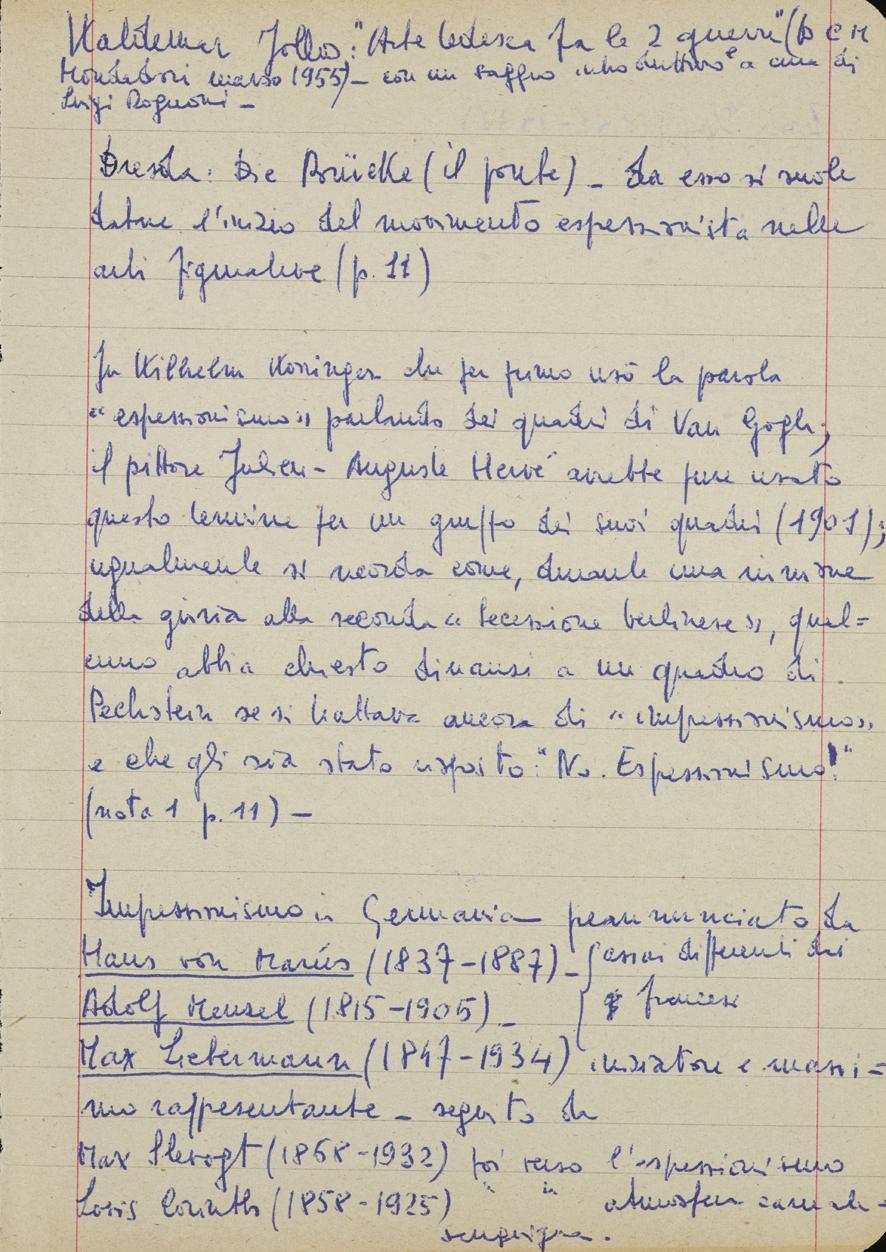 Waldemar Jollos: "Arte tedesca fra le 2 guerre" (B C M
Mondadori marzo 1955) - con un saggio introduttivo e a cura di
Luigi Rognoni -
Dresda: Die Brücke (il ponte) - da esso si suole
datare l'inizio del movimento espressionista nelle
arti figurative (p. 11)
Fu Wilhelm Worringer che per primo usò la parola
"espressionismo" parlando dei quadri di Van Gogh;
il pittore Julien-Auguste Hervé avrebbe pure usato
questo termine per un gruppo dei suoi quadri (1901);
ugualmente si ricorda come, durante una riunione
della giuria alla seconda "Secessione berlinese", qual=
cuno abbia chiesto dinanzi a un quadro di
Pechstein se si trattava ancora di "impressionismo"
e che gli sia stato risposto: "No. Espressionismo!"
(nota 1 p. 11) -
Impressionismo in Germania preannunciato da
Hans von Marées (1837-1887) - { assai differenti dai
Adolf Menzel (1815-1905) - francesi
Max Liebermann (1847-1934) iniziatore e massi=
mo rappresentante - seguito da
Max Slevogt (1868-1932) poi verso l'espressionismo
Lovis Corinth (1858-1925) " " atmosfera carnale-
sanguigna.